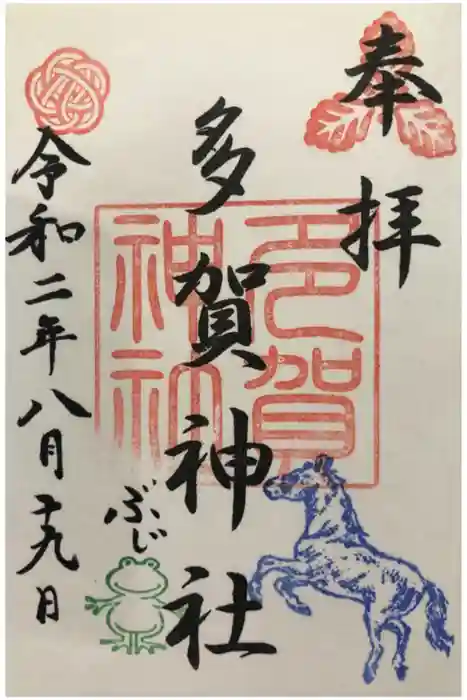 奉拝
多賀神社
多賀神社
令和二年八月十九日
ぶじ